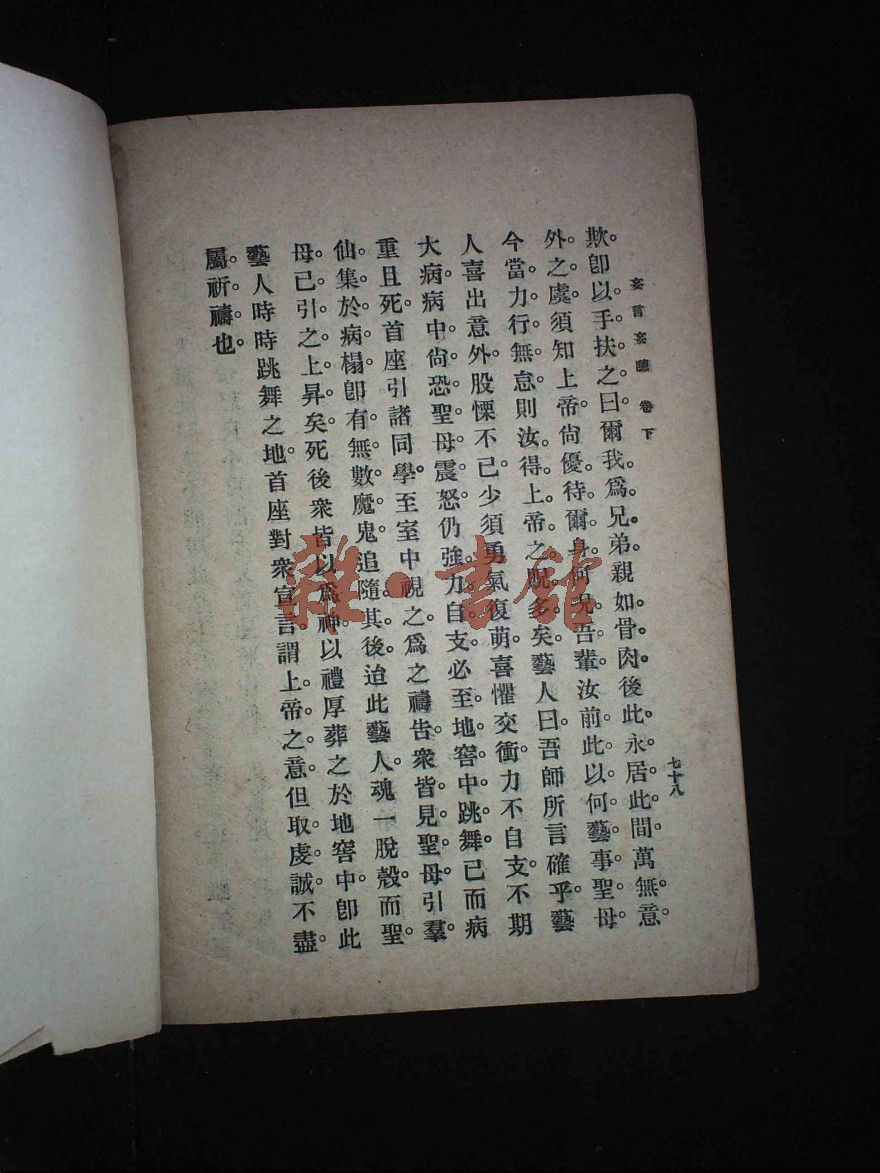 妄言妄聽　卷下
七十八
欺。卽以手扶之曰。爾我。爲兄弟。親如骨肉。後此。永居此間。萬無意。
外。之虞。須知上帝。尙優待爾身。何況吾輩。汝前此以何藝。事聖母。
今當力行。無怠。則汝。得上帝之貺。多矣。藝人曰。吾師所言。確乎。藝
人喜出意外。股慄不已。少須。勇氣復萌。喜懼交衝。力不自支。不期
大病。病中。尙恐聖母。震怒。仍強力。自支。必至地窖中。跳舞。已而病
重且死。首座引諸同學。至室中視之。爲之禱告。衆皆見。聖母引羣。
仙。集於病榻。卽有無數魔鬼。追隨。其後。迨此藝人。魂一脫殼。而聖。
母。已引之上昇。矣。死後衆皆以爲神。以禮厚葬之於地窖中。卽此
藝人時時跳舞之地。首座對衆宣言。謂上帝。之意。但取虔誠。不盡。
屬。祈禱。也。
雜·書館